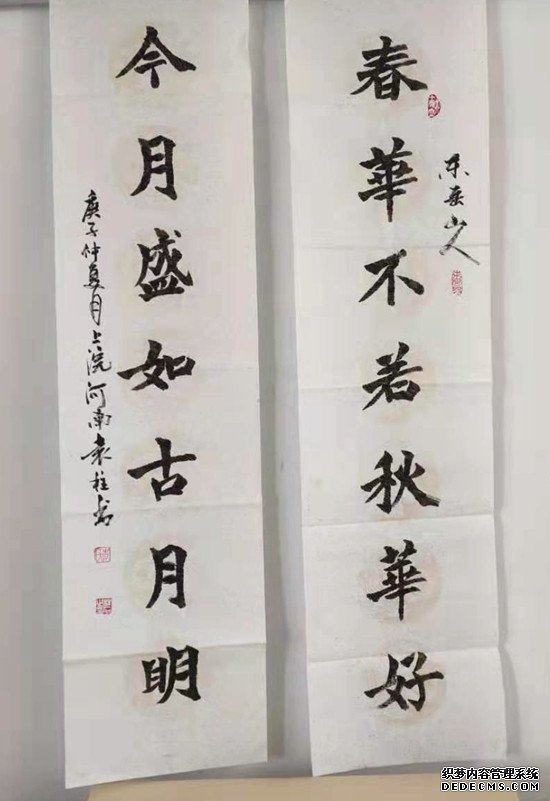 春華不若秋華好
山人
今月盛如古月明
庚子仲夏月上浣河南袁柱書
织梦内容管理系统
DEDECMS.COM